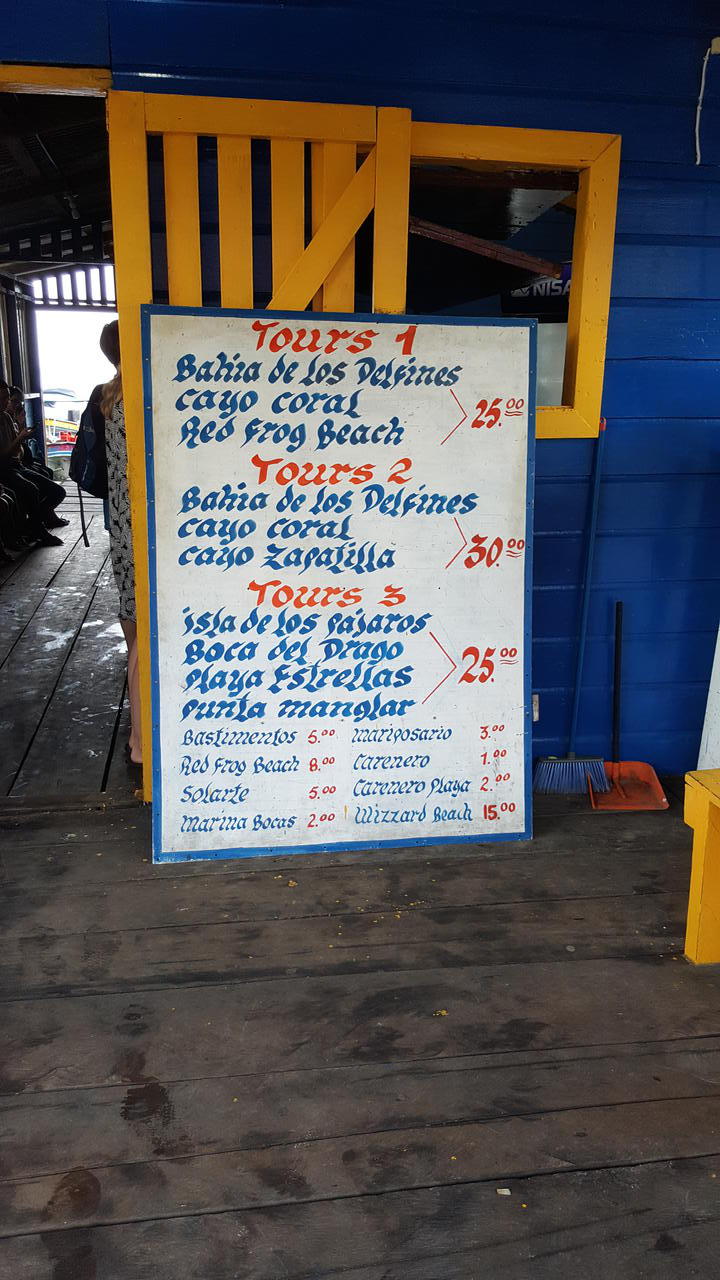 Tours 1
Bahia de los Delfines
cayo coral
Red Frog Beach
25.00
Tours 2
Bahia de los Delfines
cayo coral
cayo Zapatilla
30.00
Tours 3
isla de los pajaros
Boca del Drago
playa Estrellas
punta manglar
25.00
Bastimentos 5.00 mariposario 3.00
Red Frog Beach 8.00 Carenero 1.00
Solarte 5.00 Carenero Playa 2.00
Marina Bocas 2.00 Wizzard Beach 15.00